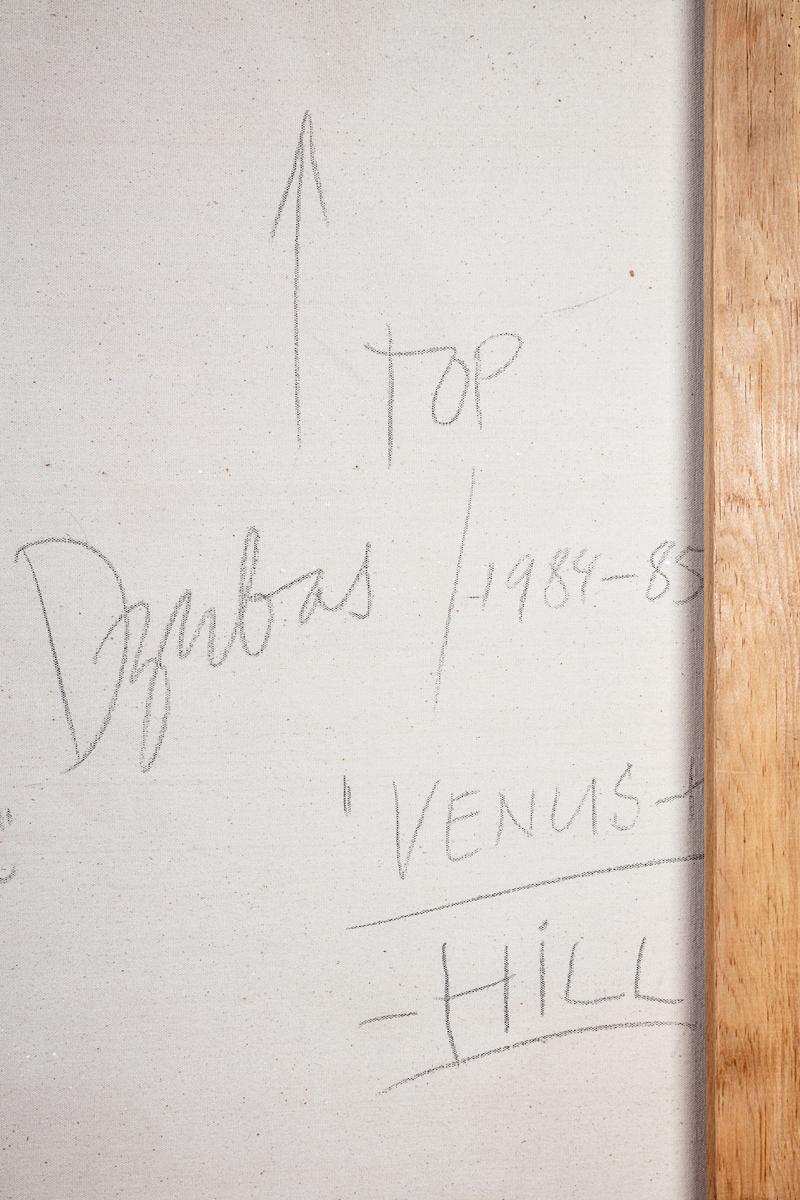 TOP
Dzubas / 1984-85
"VENUS-
-HiLL